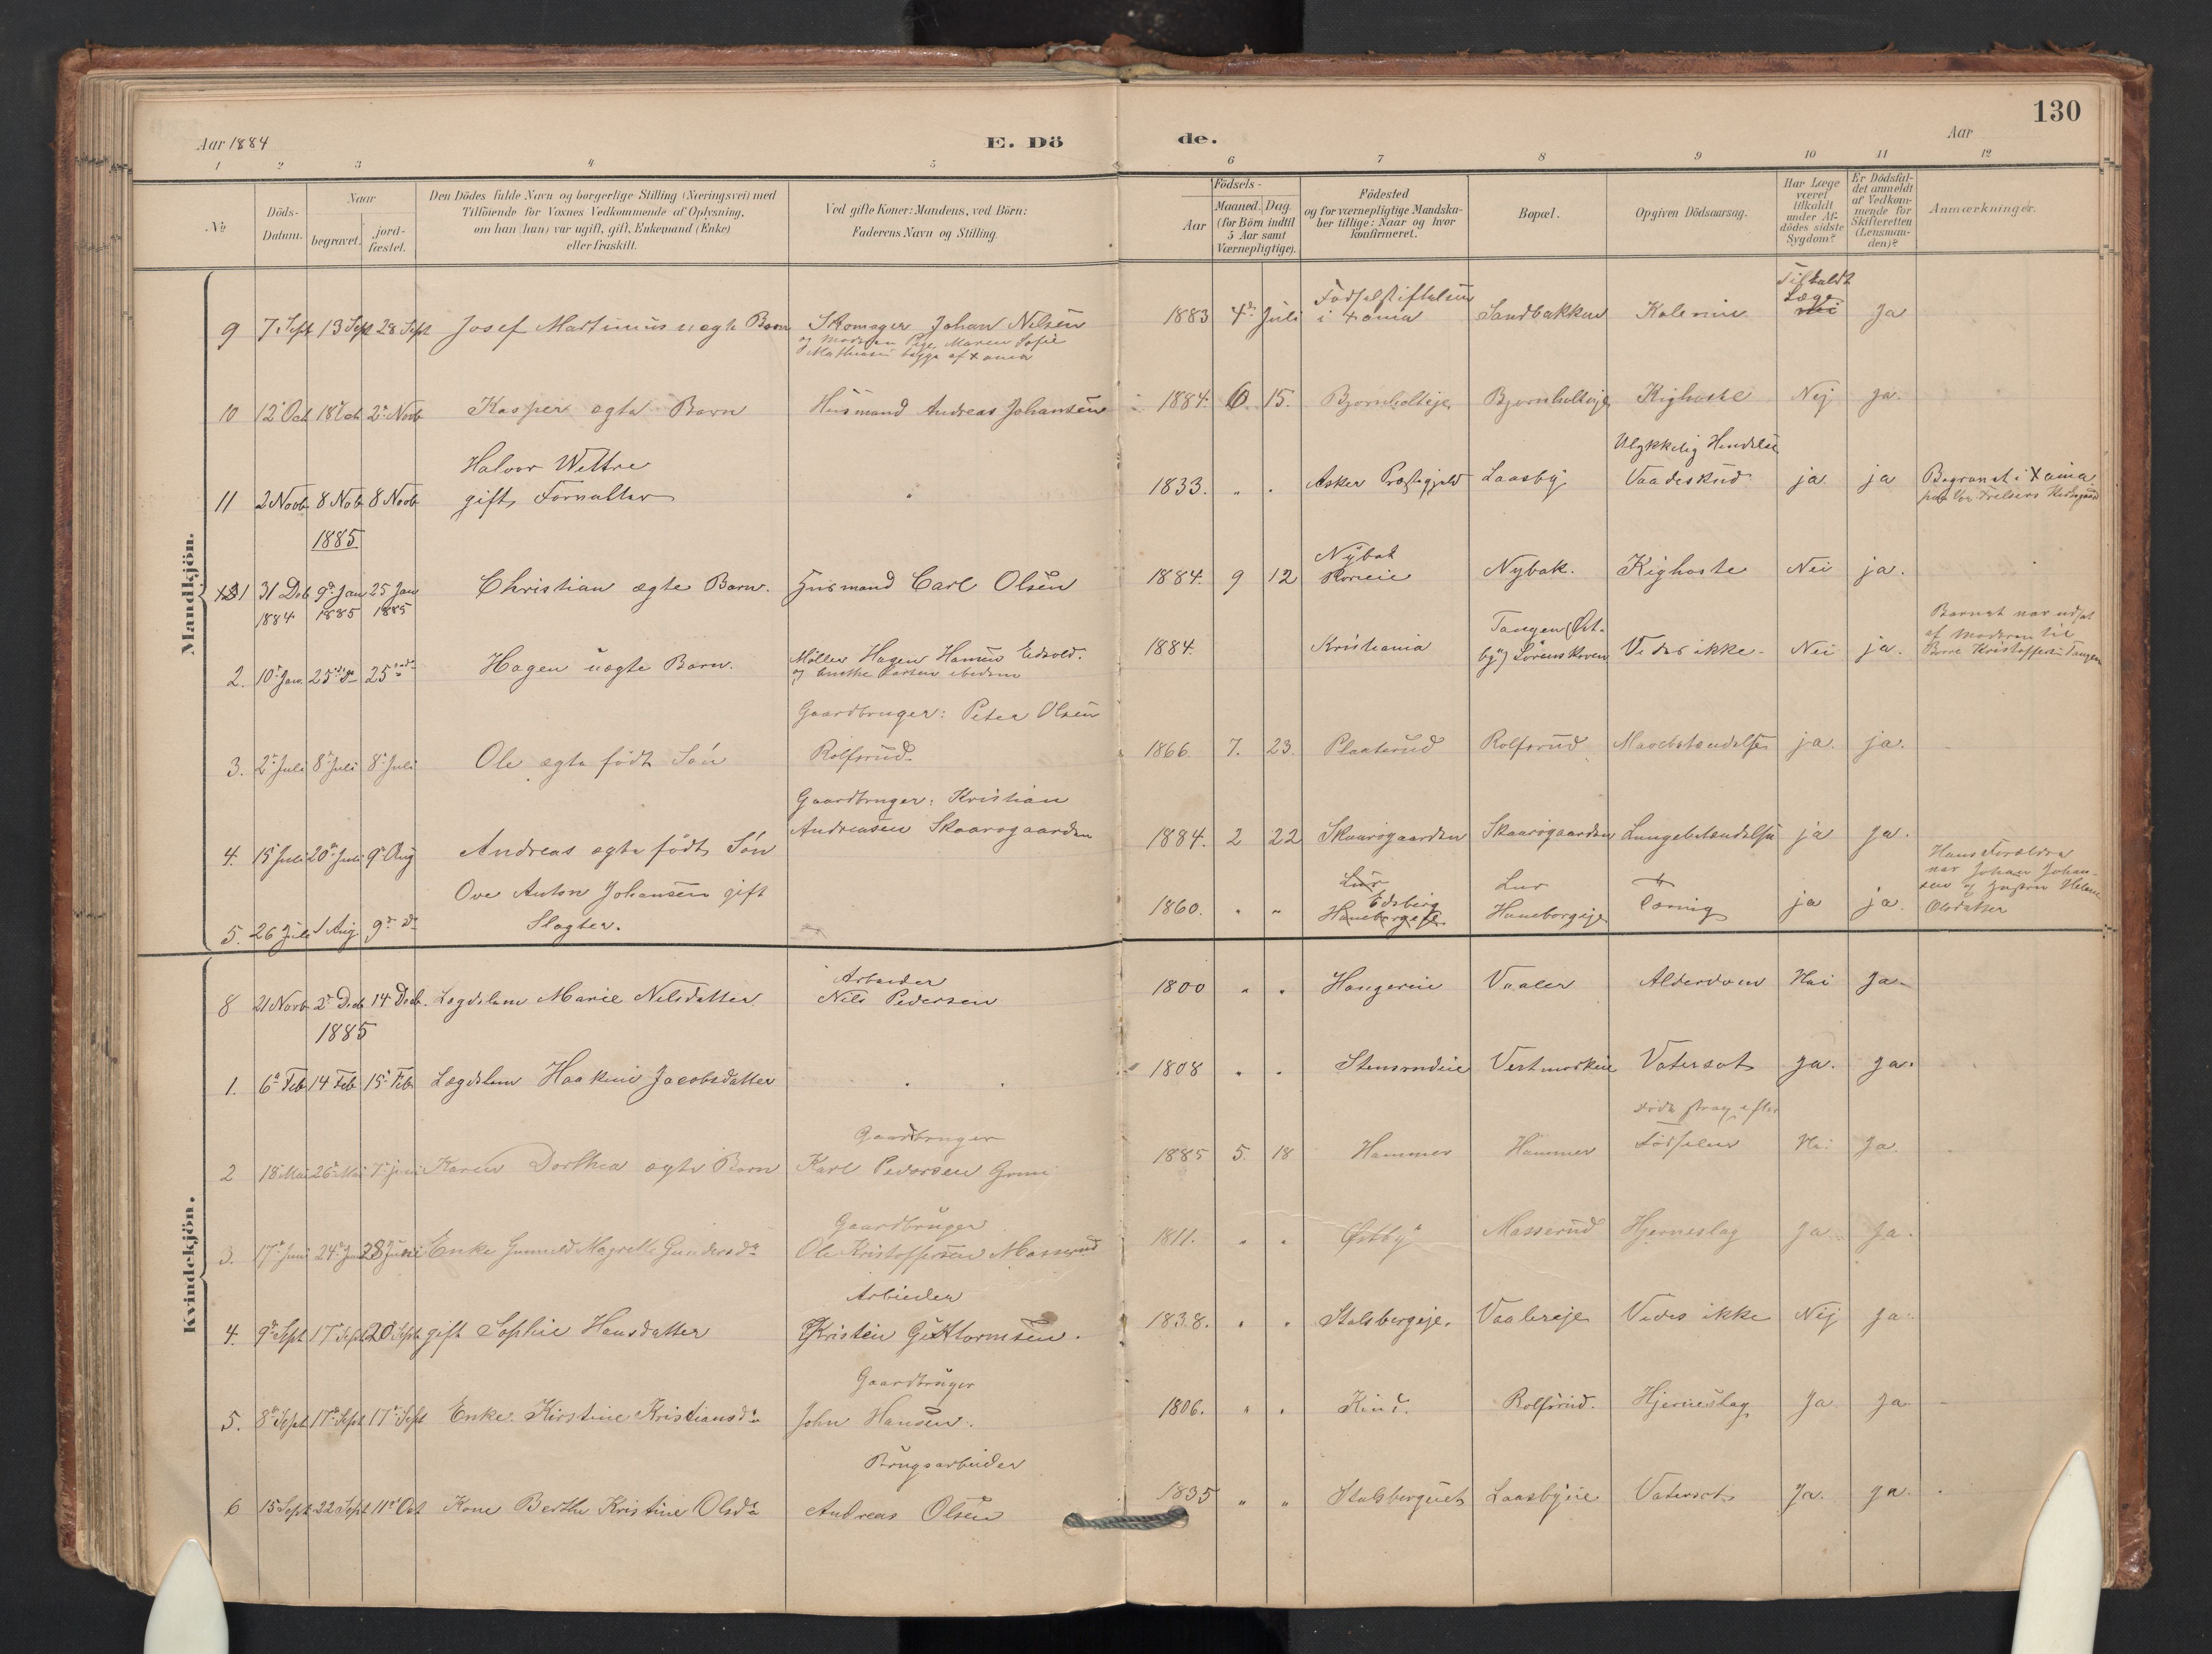 130
Aar 1884
E. Dö
de.
Aar
1 2 3 4 5 6 7 8 9 10 11 12
№
Döds-
Datum.
Naar
begravet.
jord-
fæstet.
Den Dödes fulde Navn og borgerlige Stilling (Næringsvei) med
Tilföiende for Voxnes Vedkommende af Oplysning,
om han (hun) var ugift, gift, Enkemand (Enke)
eller fraskilt.
Ved gifte Koner: Mandens, ved Börn:
Faderens Navn og Stilling.
Födsels-
Aar
Maaned. Dag
(for Börn indtil
5 Aar samt
Værnepligtige).
Födested
og for værnepligtige Mandska-
ber tillige: Naar og hvor
konfirmeret.
Bopæl.
Opgiven Dödsaarsag.
Har Læge
været
tilkaldt
under Af-
dödes sidste
Sygdom?
Er Dödsfal-
det anmeldt
af Vedkom-
mende for
Skifteretten
(Lensman-
den)?
Anmærkninger.
Mandkjön.
Tilkaldt
Læge
9 7. Sept 13 Sept 28 Sept Josef Martinus uægte Barn Skomager Johan Nilsen 1883 4de Juli Fødselsstiftelsen i Xania Sandbakken Kolerine Nei Ja
og Moderen Pige Maren Sofie
Mathisen begge af Xania
10 12 Oct 18 Oct 2 Novb Kasper ægte Barn Husmand Andreas Johansen 1884. 6 15. Bjørnholteje Bjørnholteje Kighoste Nej Ja.
Halvor Wettre
Ulykkelig Hendelse
11 2 Novb 8 Nob 8 Novb gift, Forvalter 1833. Asker Præstegjeld Laasby Vaadeskud ja ja Begravet i Xania
paa Vor Frelsers Kirkegaard
1885
1 31 Deb 9 Jan 25 Jan Christian ægte Barn. Husmand Carl Olsen 1884. 9 12 Nybak Nybak. Kighoste Nei ja.
1884 1885 1885
2. 10 Jan. 25 25 Hagen uægte Barn. Møller Hagen Hansen Eidsvold. 1884. Kristiania Tangen (Øst-
by) Sørenskoven Vides ikke. Nei ja. Barnet var udsat
af Moderen til
Børre Kristoffersen Tangen
Gaardbruger: Peter Olsen
3. 2 Juli 8 Juli 8 Juli Ole ægte født Søn Rolfsrud 1866 7. 23. Plaaterud Rolfsrud ja. ja.
Gaardbruger: Kristian
4. 15 Juli 20 Juli 9 Aug Andreas ægte født Søn Andreasen Skaarsgaarden 1884. 2 22 Skaarsgaarden Skaarsgaarden Lungebetændelse ja Ja.
Ove Anton Johansen gift
5. 26 Juli 1 Aug 9 Slagter. 1860. Lur Edsberg Haneborgeje Lur
Haneborgeje Tæring ja ja. Hans Forældre
var Johan Johan-
sen og Hustru Helene
Olsdatter
Kvindekjön.
Arbeider
8 21 Novb 2 Deb 14 Deb. Lægdslem Marie Nilsdatter Nils Pedersen 1800 Haugereie Vaaler Alderdom Nei Ja
1885
1. 6 Feb 14 Feb 15 Feb Lægdslem Haakine Jacobsdatter 1808 Stensrudeie Vestmorkeie Vatersot Ja. Ja.
Gaardbruger
Døde strax efter
2 18 Mai 26 Mai 7 Juni Karen Dorthea ægte Barn Karl Pedersen 1885 5. 18 Hammer Hammer Fødselen Nei Ja.
Gaardbruger
3. 17 Juni 24 Juni 28 Juni Enke Gunnild Magrethe Gundersd Ole Kristoffersen Masserud 1811. Østby Masserud Hjerneslag Ja Ja.
Arbeider
4. 9 Sept 17 Sept 20 Sept gift Sophie Hansdatter Kristen Guttormsen. 1838. Stalsbergeje. Vaalereje Vides ikke Nej Ja.
Gaardbruger
5. 8 Sept 17 Sept 17 Sept Enke. Kirstine Kristiansd John Hansen. 1806. Kind. Rolfsrud. Hjerneslag Ja Ja
Brugsarbeider
6 15 Sept 22 Sept 11 Oct Kone Berthe Kristine Olsd Andreas Olsen 1835 Stalsbergeiet Laasbyeie Vatersot Ja. Ja.